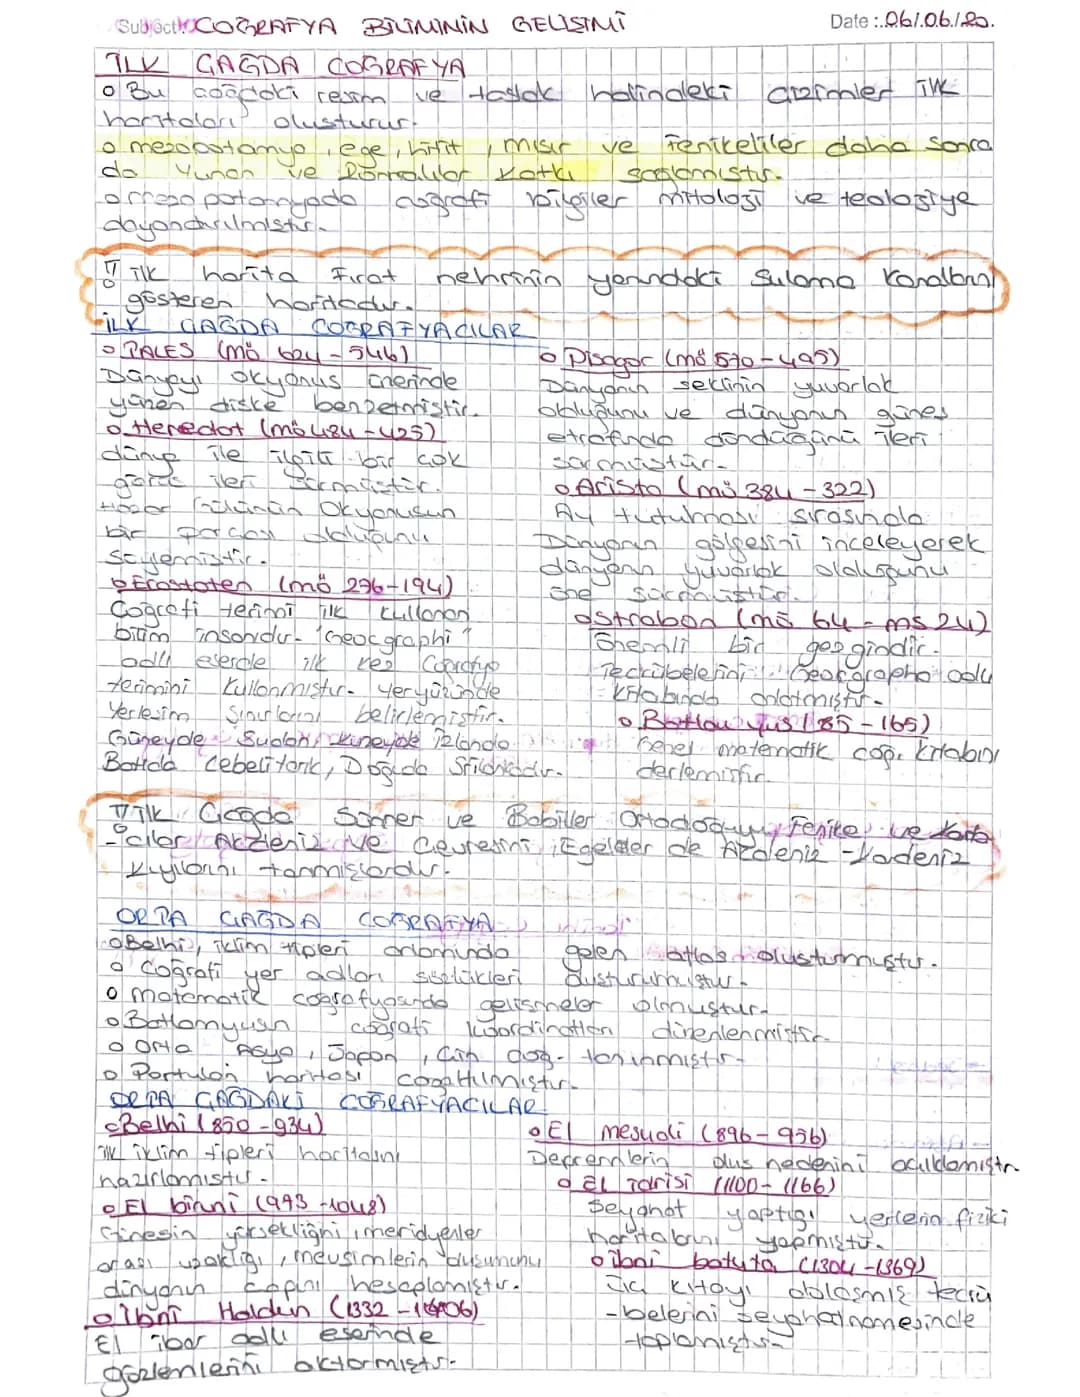 Subject: COĞRAFYA BİLİMİNİN GELİŞİMİ
Date: 06/06/20.
İLK ÇAĞDA COĞRAFYA
o Bu çağdaki resim ve taslak halindeki çizimler ilk
haritaları oluşturur.
o mezopotamya, ege, hitit, mısır ve Fenikeliler daha sonra
da Yunan ve Romalılar katkı sağlamıştır.
o mezopotamyada coğrafi bilgiler mitoloji ve teolojiye
dayandırılmıştır.
İlk harita Fırat nehrinin yanındaki Sulama Kanallarını
gösteren haritadır.
İLK ÇAĞDA COĞRAFYACILAR
o TALES (mö 624-546)
Dünyayı okyanus üzerinde
yüzen diske benzetmiştir.
o Heredot (mö 484-425)
dünya ile ilgili bir çok
görüş ileri sürmüştür.
Hazar Gölünün Okyanusun
bir parçası olduğunu
söylemiştir.
o Erastoten (mö 276-194)
Coğrafi terimi ilk kullanan
bilim insanıdır. "Geocgraphi"
adlı eserde ilk kez Coğrafya
terimini kullanmıştır. Yeryüzünde
Yerleşim Sınırlarını belirlemiştir.
Güneyde Sudan, kuzeyde İzlanda
Batıda Cebelitarık, Doğuda Srilankadır.
o Pisagor (mö 570-495)
Dünyanın şeklinin yuvarlak
olduğunu ve dünyanın güneş
etrafında döndüğünü ileri
sürmüştür.
o Aristo (mö 384-322)
Ay tutulması sırasında
Dünyanın gölgesini inceleyerek
dünyanın yuvarlak olduğunu
öne sürmüştür.
o Strabon (mö 64-ms 24)
Önemli bir gezgindir.
Tecrübelerini Geographa adlı
Kitabında anlatmıştır.
o Batlamyus (85-165)
Genel matematik coğ. kitabını
derlemiştir.
İlk Çağda Sümer ve Babiller Ortadoğuyu, Fenike ve Karta
-calar Akdeniz ve Çevresini, Egeliler de Akdeniz-Karadeniz
kıyılarını tanımışlardır.
ORTA ÇAĞDA COĞRAFYA
o Belhi, iklim tipleri anlamında gelen atlas oluşturmuştur.
o Coğrafi yer adları sözlükleri oluşturulmuştur.
o matematik coğrafyasında gelişmeler olmuştur.
o Batlamyusun coğrafi koordinatları düzenlenmiştir.
o Orta Asya, Japon, Çin coğ. tanınmıştır.
o Portulan haritası çoğaltılmıştır.
ORTA ÇAĞDAKİ COĞRAFYACILAR
o Belhi (850-934)
ilk iklim tipleri haritasını
hazırlamıştır.
o El biruni (973-1048)
Güneşin yüksekliğini, meridyenler
arası uzaklığı, mevsimlerin oluşumunu
dünyanın çapını hesaplamıştır.
o İbni Haldun (1332-1406)
El iber adlı eserinde
gözlemlerini aktarmıştır.
o El mesudi (896-956)
Depremlerin oluş nedenini açıklamıştır.
o El idrisi (1100-1166)
Seyahat yaptığı yerlerin fiziki
haritalarını yapmıştır.
o ibni batuta (1304-1369)
Üç kıtayı dolaşmış tecrü
-belerini seyahatnamesinde
toplamıştır.